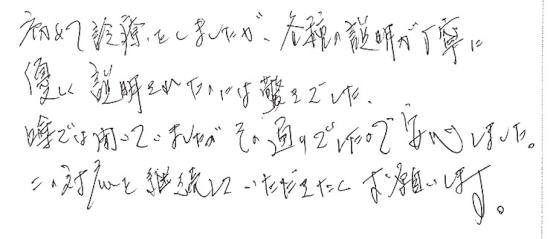 初めて診療をしましたが、各種の説明が丁寧に
優しく説明されたのには驚きでした。
噂では聞いていましたがその通りでしたので安心しました。
この対応を継続していただきたくお願いします。